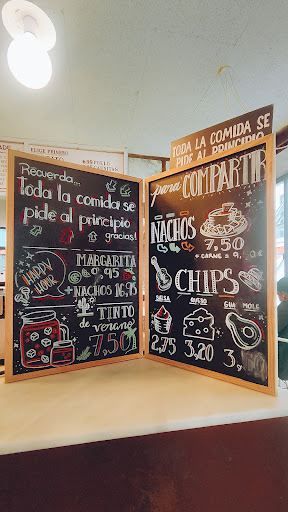 ELIGE PRIMERO
TODA LA COMIDA SE
PIDE AL PRINCIPIO
Recuerda...
Toda la comida se
pide al principio
gracias!
HAPPY
HOUR
MARGARITA
6,95
+NACHOS 16,95
TINTO
de
verano
7,50
para COMPARTIR
NACHOS
7,50
+ CARNE 2 9,
CHIPS
SALSA QUESO GUA MOLE
2,75 3,20 3,